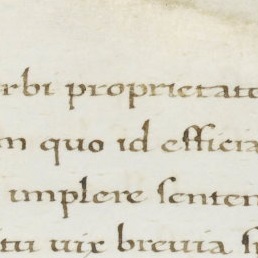 rbi proprietat
m quo id efficia
implere senten
itu uix breuia s